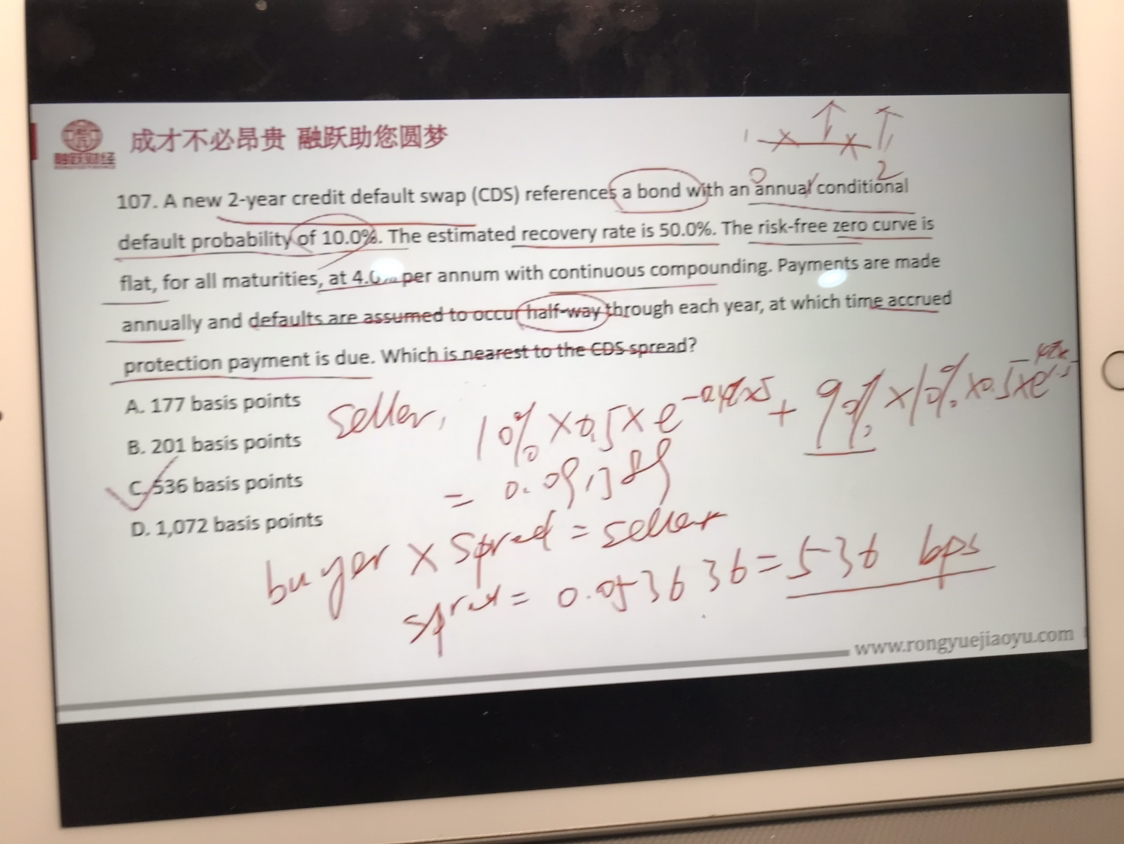 成才不必昂贵 融跃助您圆梦
融跃财经
0 2
107. A new 2-year credit default swap (CDS) references a bond with an annual conditional
default probability of 10.0%. The estimated recovery rate is 50.0%. The risk-free zero curve is
flat, for all maturities, at 4.0% per annum with continuous compounding. Payments are made
annually and defaults are assumed to occur half-way through each year, at which time accrued
protection payment is due. Which is nearest to the CDS spread?
A. 177 basis points
B. 201 basis points
C. 536 basis points
D. 1,072 basis points
seller,
10% × 0.5 × e + 90% × 10% × 0.5 × e
= 0.09
buyer × spread = seller
= 0.053636 = 536 bps
www.rongyuejiaoyu.com